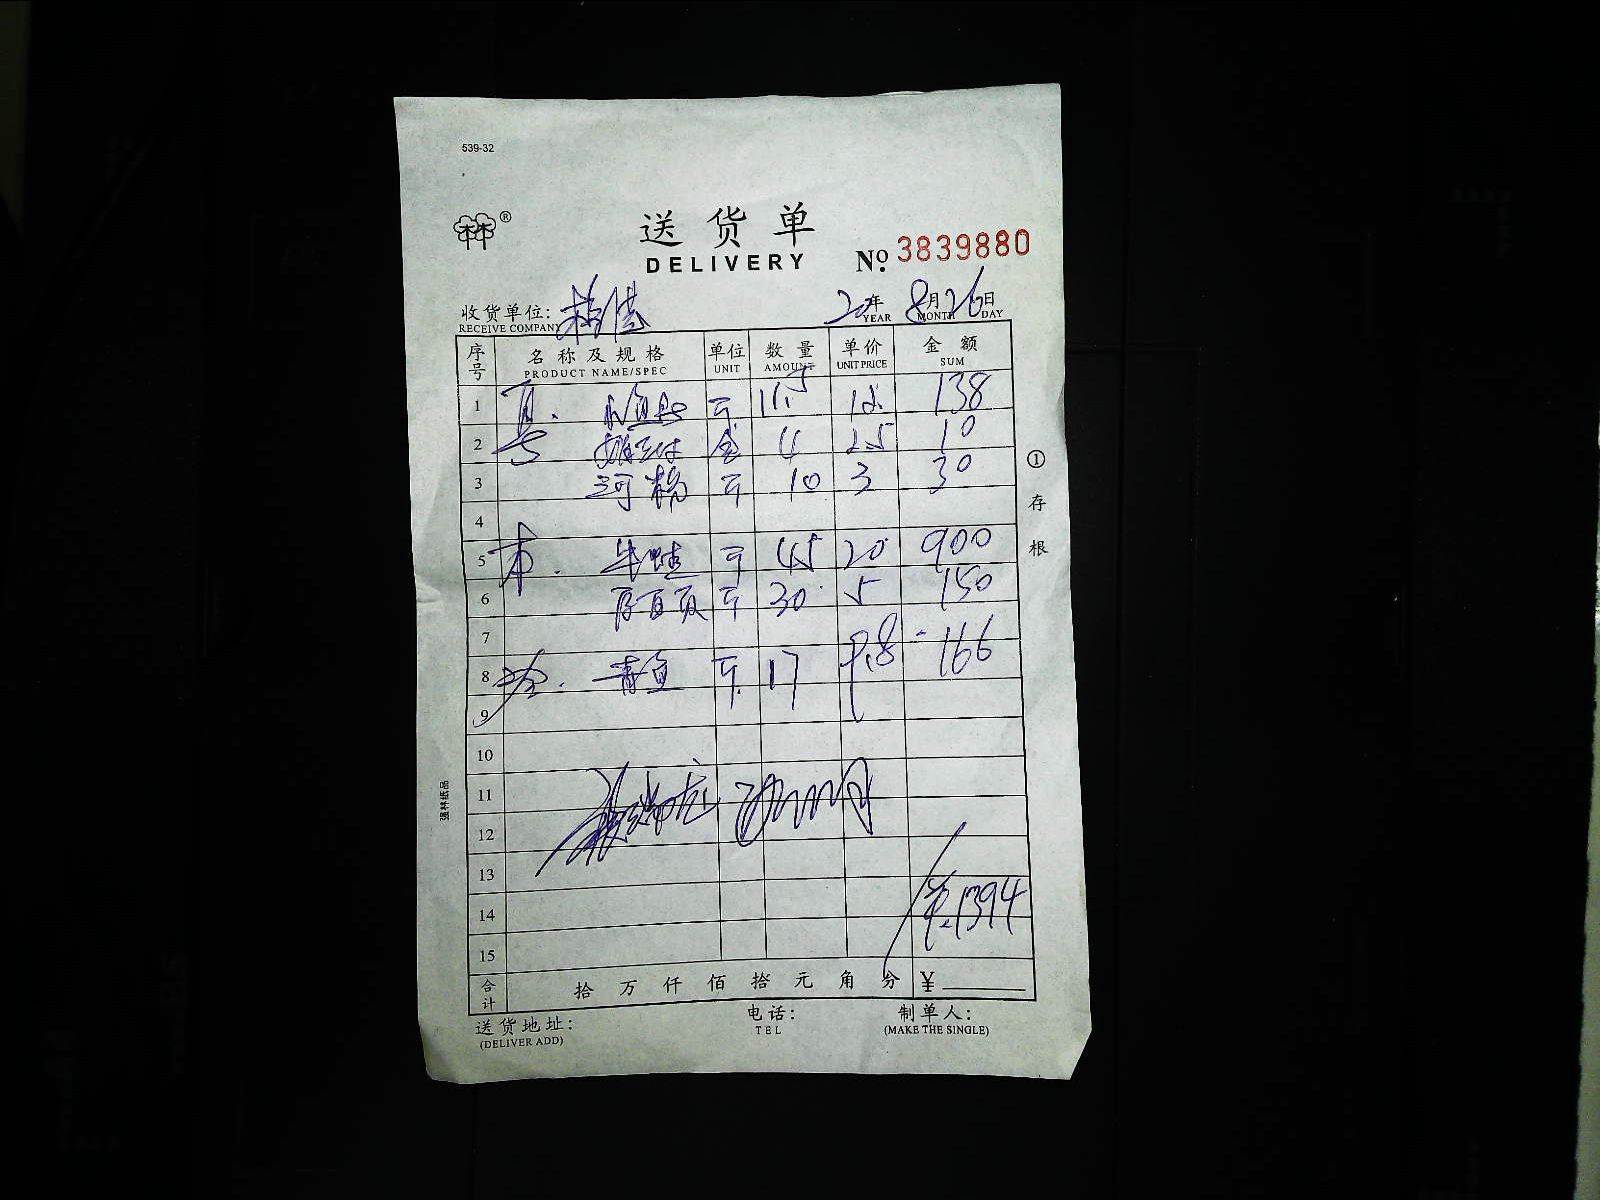 539-32
林林®
送货单
DELIVERY
№. 3839880
收货单位:
RECEIVE COMPANY
20年 8月26日
YEAR MONTH DAY
序号 名称及规格 单位 数量 单价 金额
PRODUCT NAME/SPEC UNIT AMOUNT UNIT PRICE SUM
1 斤 11.5 12 138
2 盒 4 2.5 10
3 河粉 斤 10 3 30
4
5 本. 牛蛙 斤 45 20 900
6 厚百页 斤 30 5 150
7
8 青鱼 斤 17 9.8 166
9
10
11
12
13
14 1394
15
合计 拾 万 仟 佰 拾 元 角 分 ¥
送货地址: 电话: 制单人:
(DELIVER ADD) TEL (MAKE THE SINGLE)
①存根
强林纸品